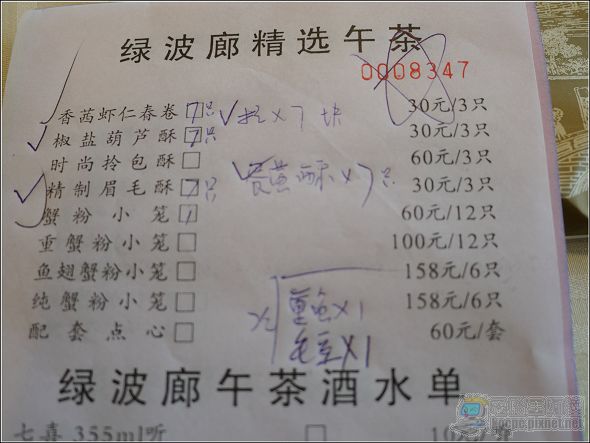 绿波廊精选午茶
0008347
香茜虾仁春卷 7只 30元/3只
椒盐葫芦酥 7只 30元/3只
时尚拎包酥 60元/3只
精制眉毛酥 7只 30元/3只
蟹粉小笼 1 60元/12只
重蟹粉小笼 100元/12只
鱼翅蟹粉小笼 158元/6只
纯蟹粉小笼 158元/6只
配套点心 60元/套
x7块
黄酥x7只
鱼x1
毛豆x1
绿波廊午茶酒水单
七喜 355ml听